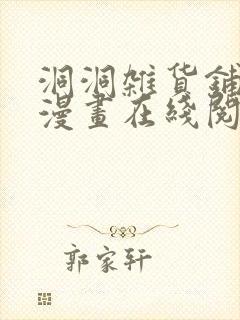 洞洞雑货鋪
漫畫在綫閱
郭家轩